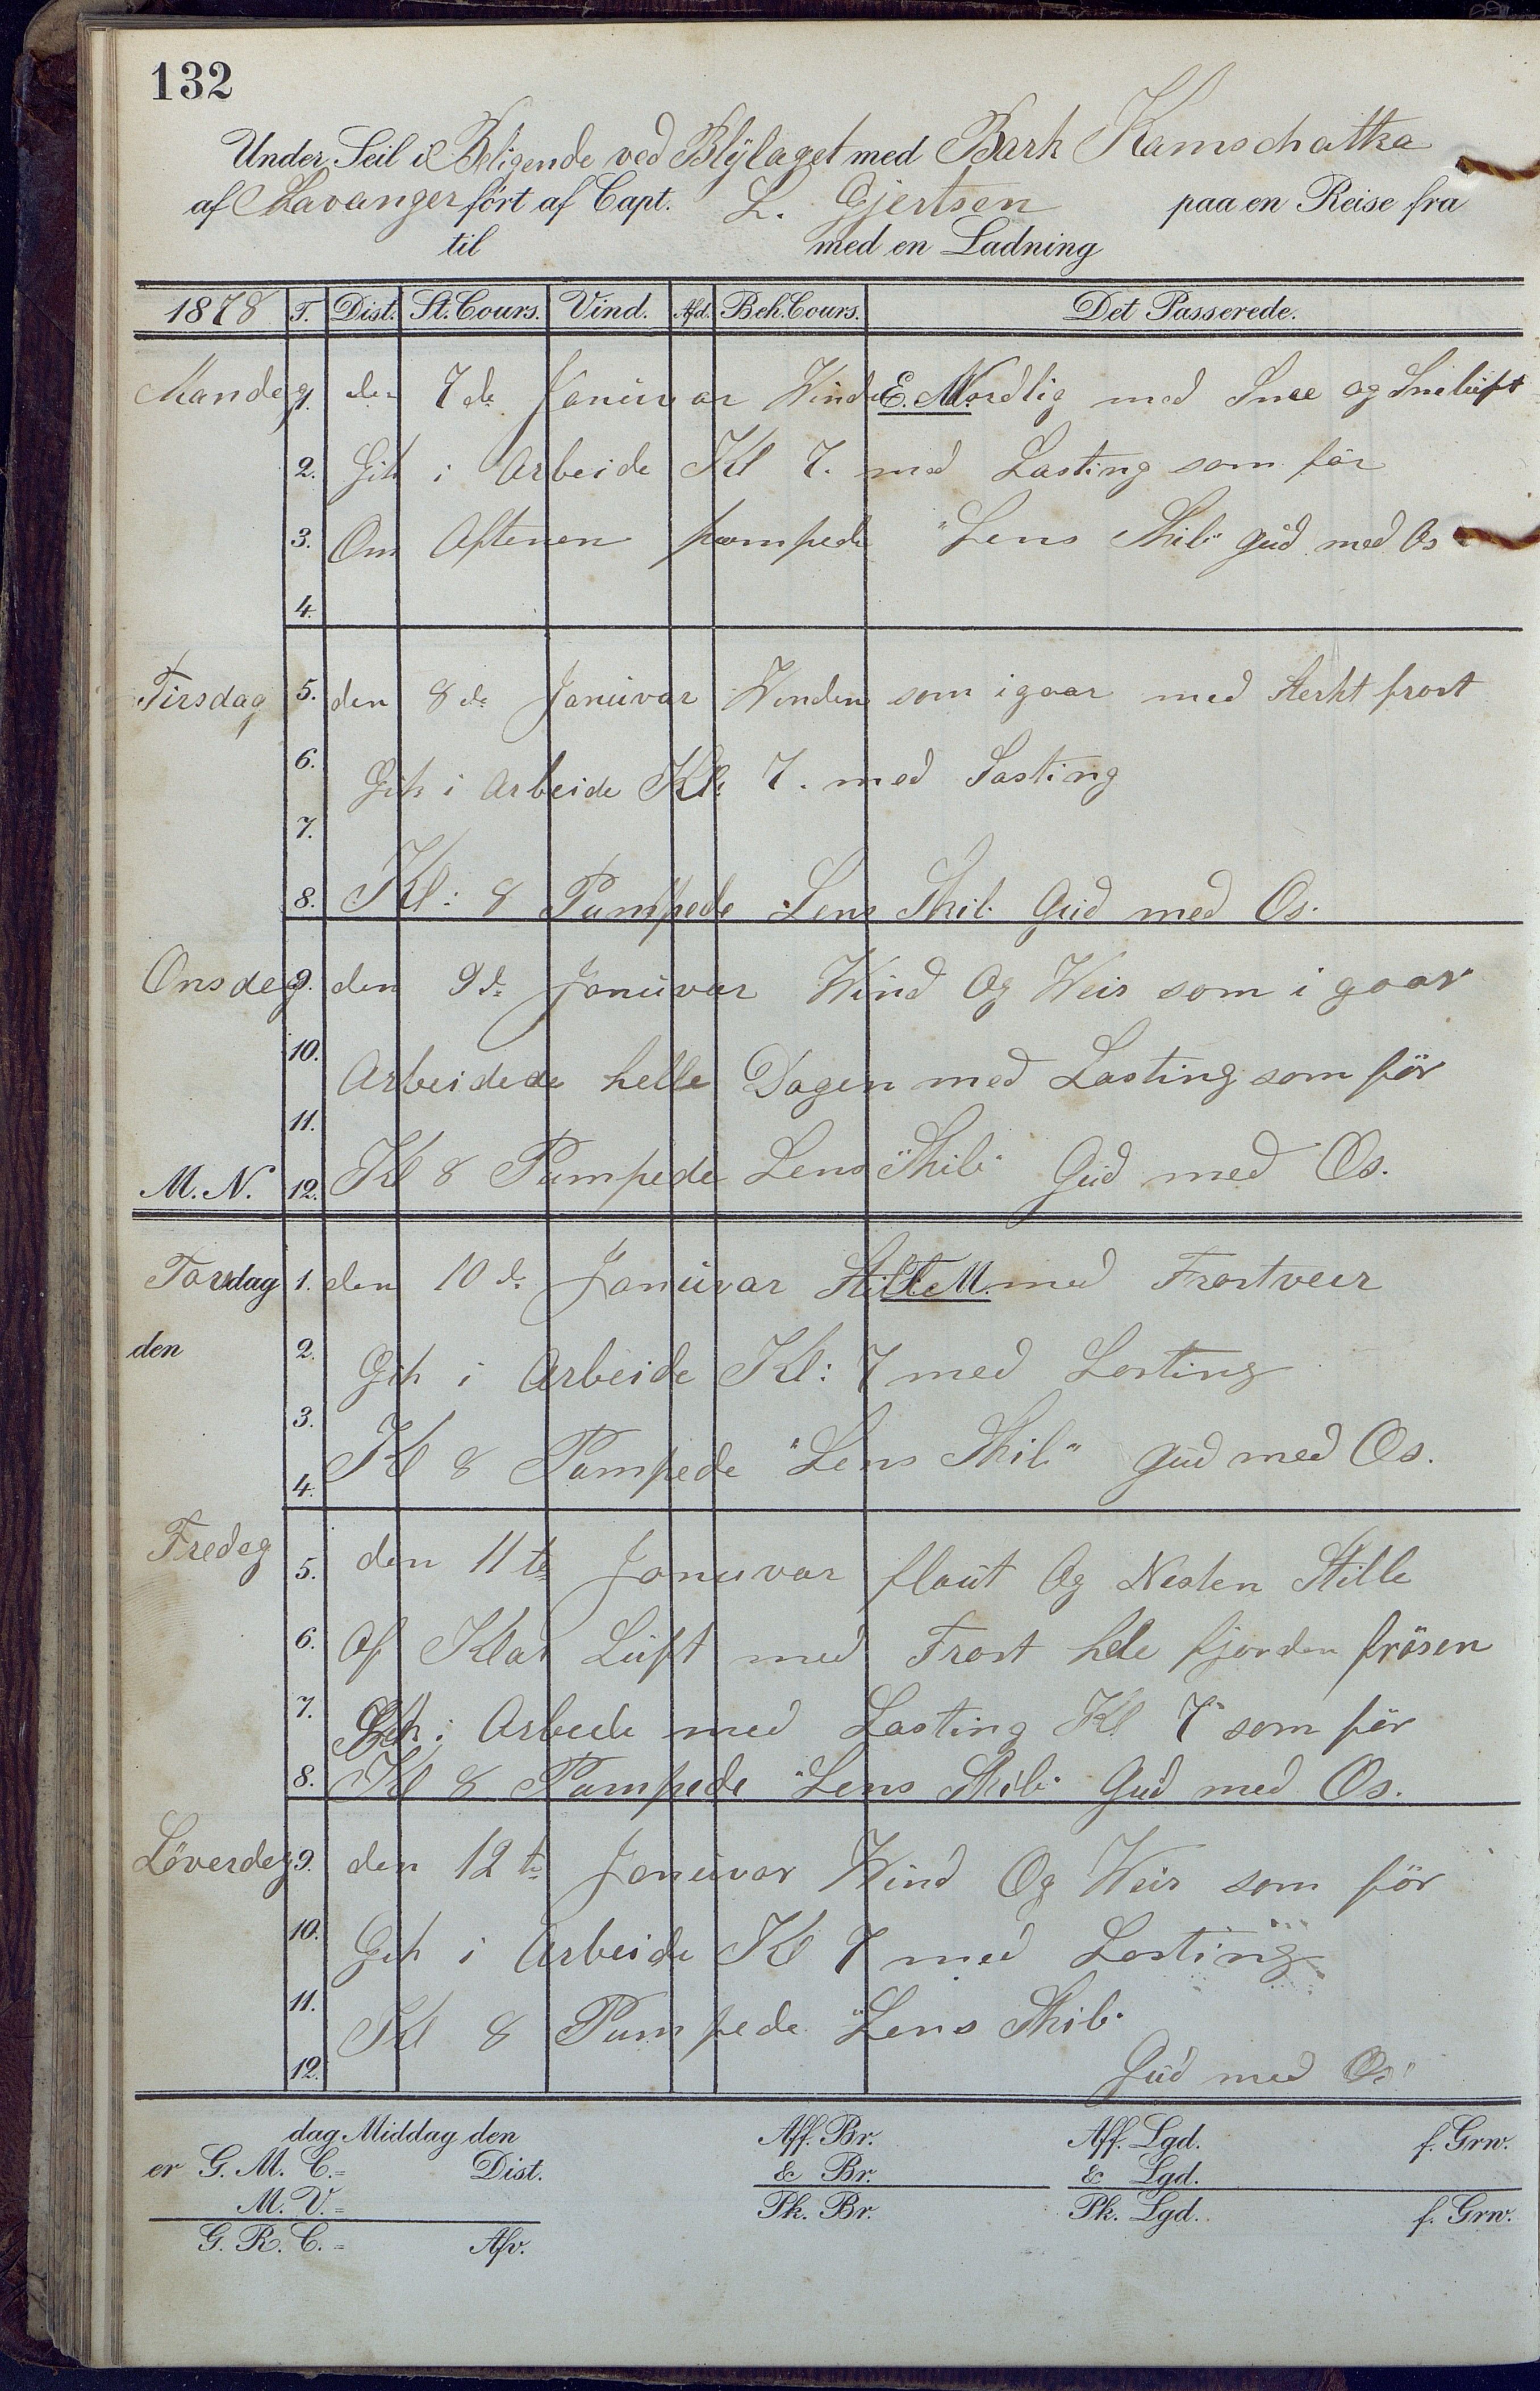 132
Under Seil i Beligende ved Blÿlaget med Bark Kamschatka
af Stavanger ført af Capt. L. Gjertsen paa en Reise fra
til med en Ladning
1878 T. Dist. St. Cours. Vind. Afd. Beh. Cours. Det Passerede.
Mandag 1. den 7de Januvar Winden E.M. Nordlig med Snee og Sneluft
2. Gik i Arbeide Kl 7. med Lasting som før
3. Om Aftenen pompede "Lens Skib" Gud med Os
4.
Tirsdag 5. den 8de Januvar Winden som igaar med Sterkt frost
6. Gik i Arbeide Kl: 7. med Lasting
7.
8. Kl: 8 Pumpede "Lens Skib" Gud med Os.
Onsdag 9. den 9de Januvar Wind Og Weir som i gaar
10. Arbeidede helle Dagen med Lasting som för
11.
M. N. 12. Kl 8 Pumpede Lens "Skib" Gud med Os.
Torsdag 1. den 10de Januvar Stille E.M. med Frostveer
den 2. Gik i Arbeide Kl: 7 med Lasting
3.
4. Kl 8 Pumpede "Lens Skib" Gud med Os.
Fredag 5. den 11te Januvar flaut Og Nesten Stille
6. Af Klar Luft med Frost hele fjorden frösen
7. Gik i Arbeede med Lasting Kl 7 som för
8. Kl 8 Pumpede "Lens Skib" Gud med Os.
Löverdag 9. den 12te Januvar Wind Og Weir som för
10. Gik i Arbeide Kl 7 med Lasting
11. Kl 8 Pumpede "Lens Skib"
12. Gud med Os
dag Middag den Aff. Br. Aff. Lgd. f. Grw.
er G. M. C.= Dist. & Br. & Lgd.
M. V.= Pk. Br. Pk. Lgd. f. Grw.
G. R. C.= Afv.